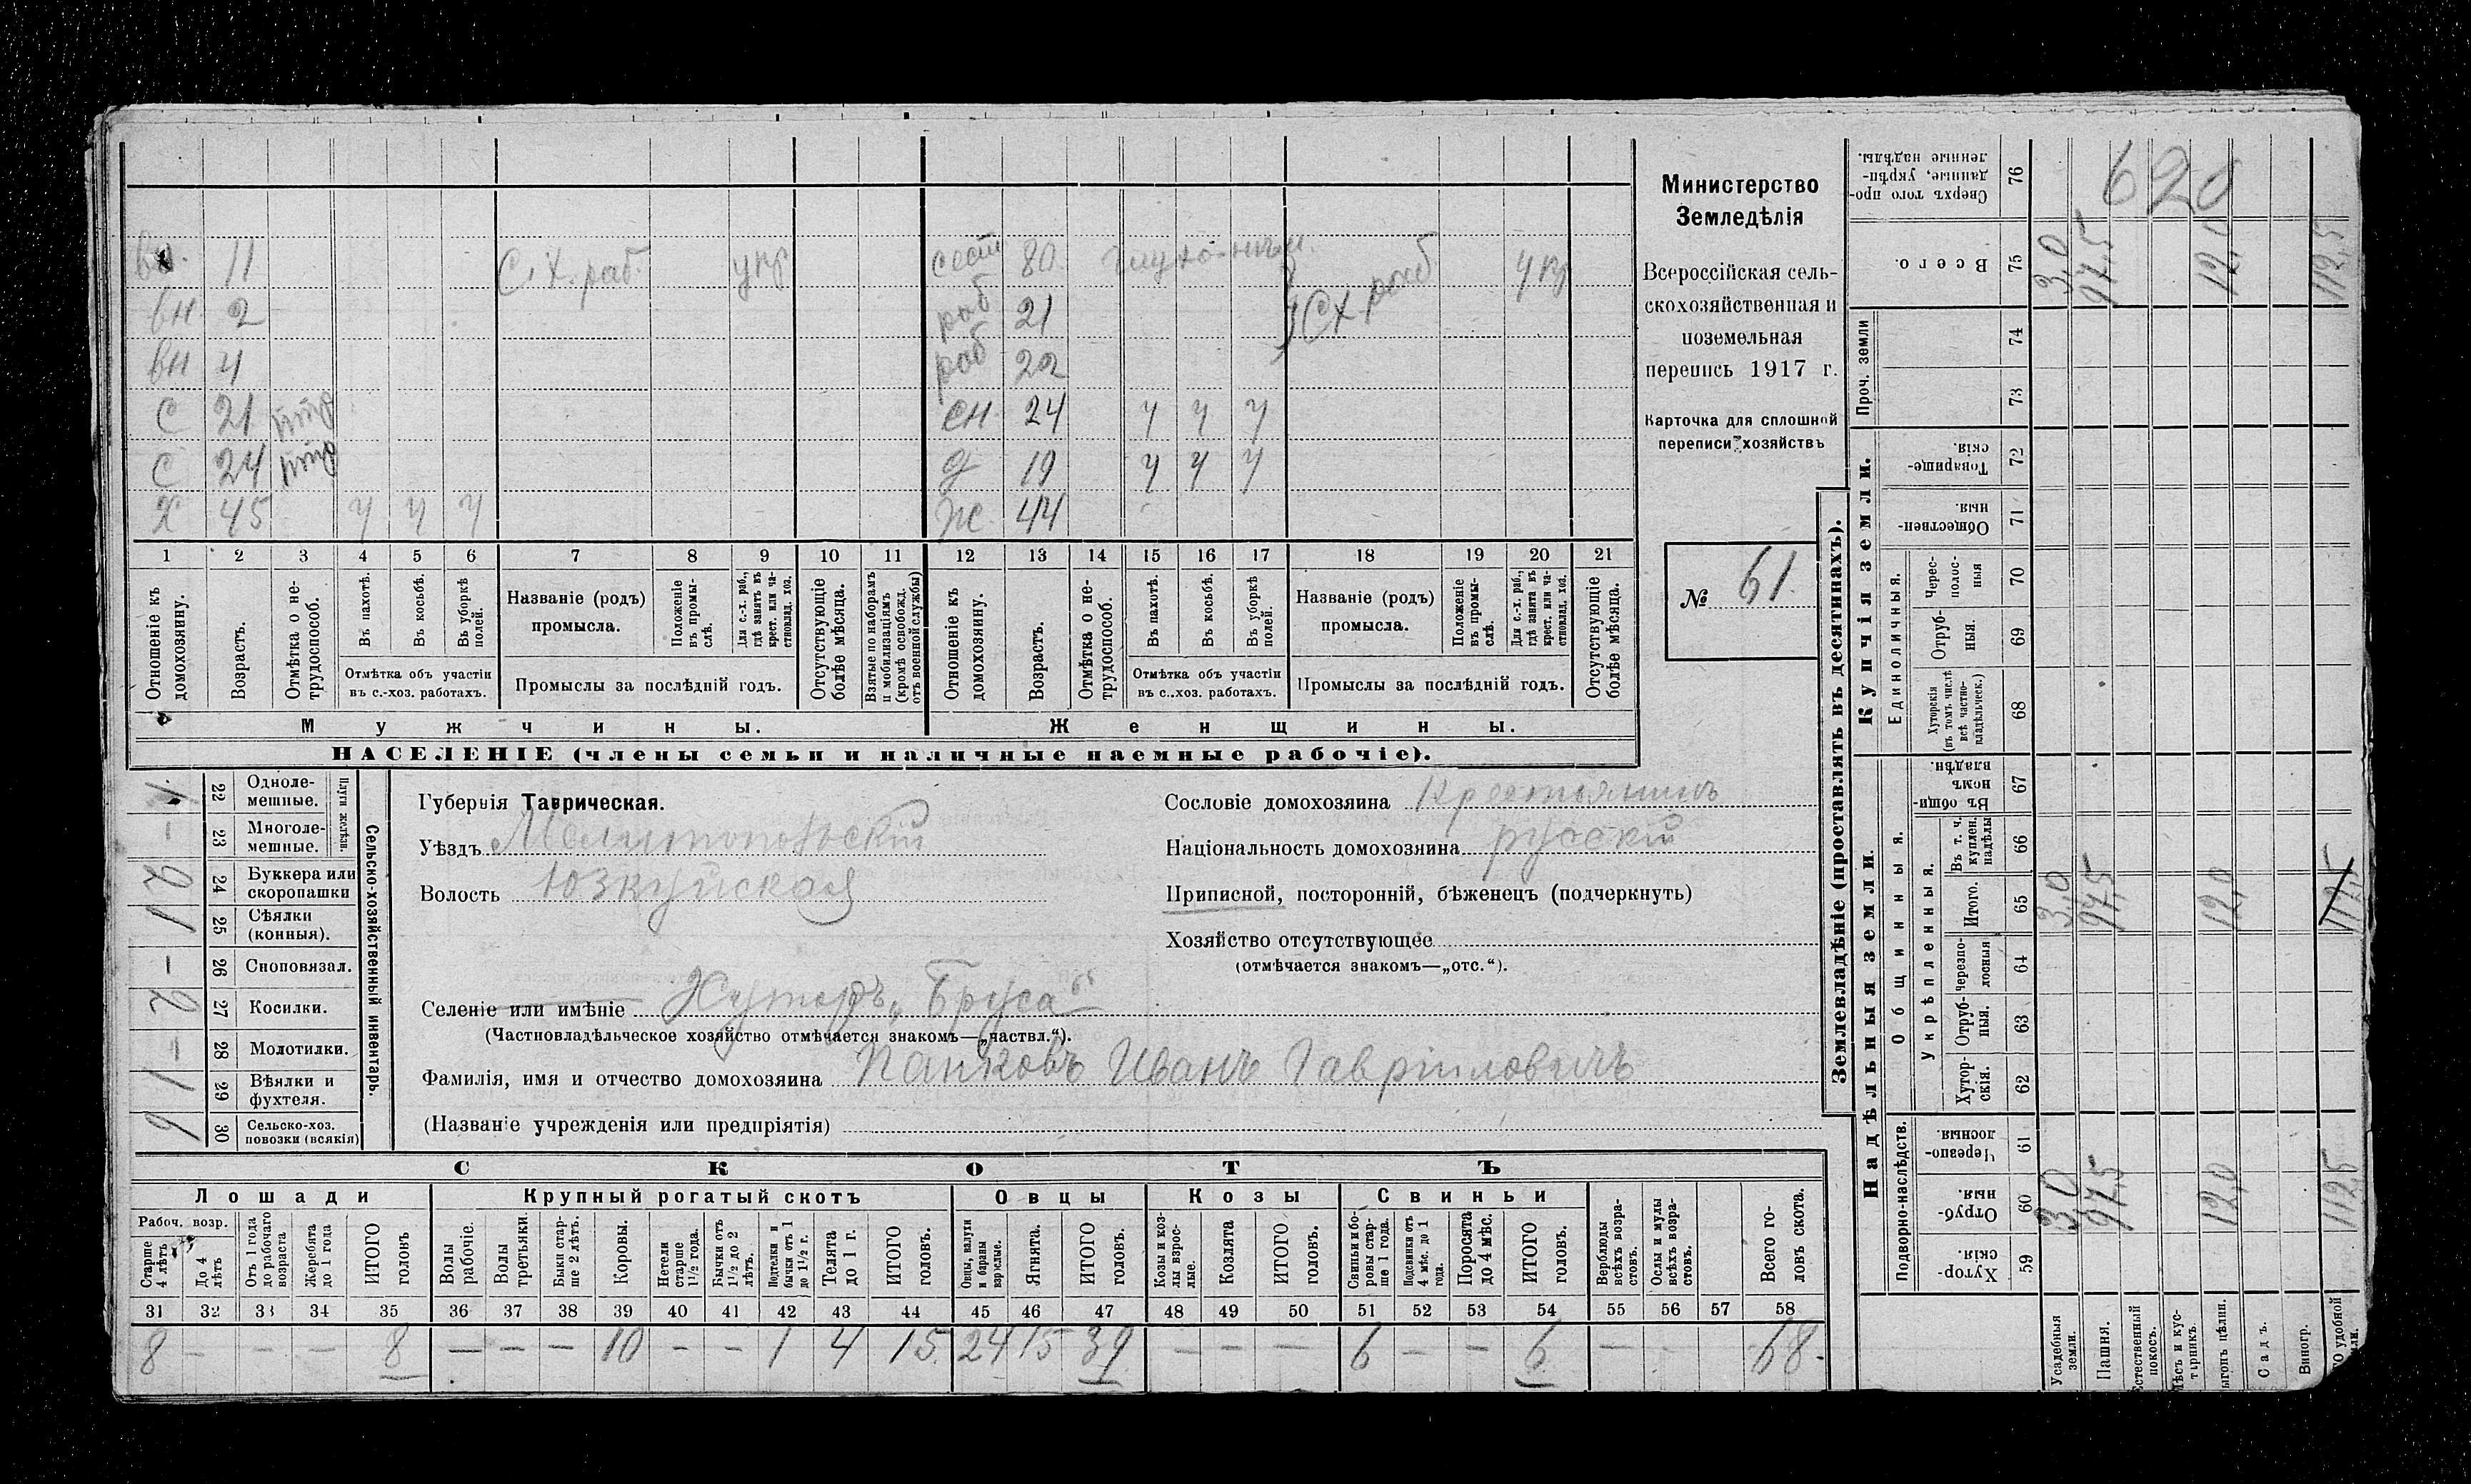 вн. 11 С. Х. раб. укр сест 80
вн. 2 раб 21 СХ раб укр
вн 4 раб 22
С 21 сн. 24 ч ч ч
С 24 д 19 ч ч ч
Х 45 ч ч ч ж. 44
1 2 3 4 5 6 7 8 9 10 11 12 13 14 15 16 17 18 19 20 21
Отношеніе къ домохозяину.
Возрастъ.
Отмѣтка о не-
трудоспособ.
Въ пахотѣ.
Въ косьбѣ.
Въ уборкѣ полей.
Отмѣтка объ участіи
въ с.-хоз. работахъ.
Названіе (родъ)
промысла.
Положеніе въ промы-
слѣ.
Для с.-х. раб.,
гдѣ занятъ въ
крест. или ча-
стновлад. хоз.
Промыслы за послѣдній годъ.
Отсутствующіе
болѣе мѣсяца.
Взятые по наборамъ
и мобилизаціямъ
(кромѣ освобожд.
отъ военной службы)
Отношеніе къ
домохозяину.
Возрастъ.
Отмѣтка о не-
трудоспособ.
Въ пахотѣ.
Въ косьбѣ.
Въ уборкѣ
полей.
Отмѣтка объ участіи
въ с..хоз. работахъ.
Названіе (родъ)
промысла.
Положеніе
въ промы-
слѣ.
Для с.-х. раб.,
гдѣ занята въ
крест. или ча-
стновлад. хоз.
Промыслы за послѣдній годъ.
Отсутствующіе
болѣе мѣсяца.
Мужчины.
Женщины.
НАСЕЛЕНІЕ (члены семьи и наличные наемные рабочіе).
Министерство
Земледѣлія
Всероссійская сель-
скохозяйственная и
поземельная
перепись 1917 г.
Карточка для сплошной
переписи хозяйствъ
№ 61.
Сельско-хозяйственный инвентарь.
Плуги желѣзн.
22 Одноле-
мешные.
- 23 Многоле-
мешные.
2 24 Буккера или
скоропашки
1 25 Сѣялки
(конныя).
- 26 Сноповязал.
2 27 Косилки.
- 28 Молотилки.
1 29 Вѣялки и
фухтеля.
9 30 Сельско-хоз.
повозки (всякія)
Губернія Таврическая.
Уѣздъ Мелитопольскій
Волость Юзкуйская
Сословіе домохозяина Крестьянинъ
Національность домохозяина русскій
Приписной, посторонній, бѣженецъ (подчеркнуть)
Хозяйство отсутствующее
(отмѣчается знакомъ—„отс.“).
Селеніе или имѣніе Хуторъ „Бруса“
(Частновладѣльческое хозяйство отмѣчается знакомъ—„частвл.“).
Фамилія, имя и отчество домохозяина Панковъ Иванъ Гавріиловичъ
(Названіе учрежденія или предпріятія)
СКОТЪ
Лошади
Крупный рогатый скотъ
Овцы
Козы
Свиньи
Рабоч. возр.
Старше
4 лѣтъ
До 4
лѣтъ
Отъ 1 года
до рабочаго
возраста
Жеребята
до 1 года
ИТОГО
головъ
Волы
рабочіе.
Волы
третьяки.
Быки стар-
ше 2 лѣтъ.
Коровы.
Нетели
старше
1½ года.
Бычки отъ
1½ до 2
лѣтъ.
Подтелки и
бычки отъ 1
до 1½ г.
Телята
до 1 г.
ИТОГО
головъ.
Овцы, валухи
и бараны
взрослые.
Ягнята.
ИТОГО
головъ.
Козы и коз-
лы взрос-
лые.
Козлята
ИТОГО
головъ.
Свиньи и бо-
ровы стар-
ше 1 года.
Подсвинки отъ
4 мѣс. до 1
года.
Поросята
до 4 мѣс.
ИТОГО
головъ.
Верблюды
всѣхъ возра-
стовъ.
Ослы и мулы
всѣхъ возра-
стовъ.
Всего го-
ловъ скота.
31 32 33 34 35 36 37 38 39 40 41 42 43 44 45 46 47 48 49 50 51 52 53 54 55 56 57 58
8 — — — 8 — — — 10 — — 1 4 15. 24 15 39 — — — 6 — — 6 — — 68.
Землевладѣніе (проставлять въ десятинахъ).
Надѣльныя земли.
Купчія земли.
Проч. земли
Подворно-наслѣдств.
Общинныя.
Укрѣпленныя.
Единоличныя.
Сверхъ того про-
данные, укрѣп-
ленные надѣлы.
76
620
Всего.
75 3,0 97,5 12,0 112,5
74
73
Товарище-
скія.
72
Обществен-
ныя.
71
Черес-
полос-
ныя
70
Отруб-
ныя.
69
Хуторскія
(въ томъ числѣ
всѣ частно-
владѣльческ.)
68
Въ общин-
номъ
владѣн.
67
Въ т. ч.
куплен.
надѣлы
66
Итого.
65 3,0 97,5 12,0 112,5
Черезпо-
лосныя
64
Отруб-
ныя.
63
Хутор-
скія.
62
Черезпо-
лосныя.
61
Отруб-
ныя.
60 3,0 97,5 12,0 112,5
Хутор-
скія.
59
Усадебныя
земли.
Пашня.
Естественный
покосъ.
Лѣсъ и кус-
тарникъ.
Выгонъ цѣлин.
Садъ.
Виногр.
удобной